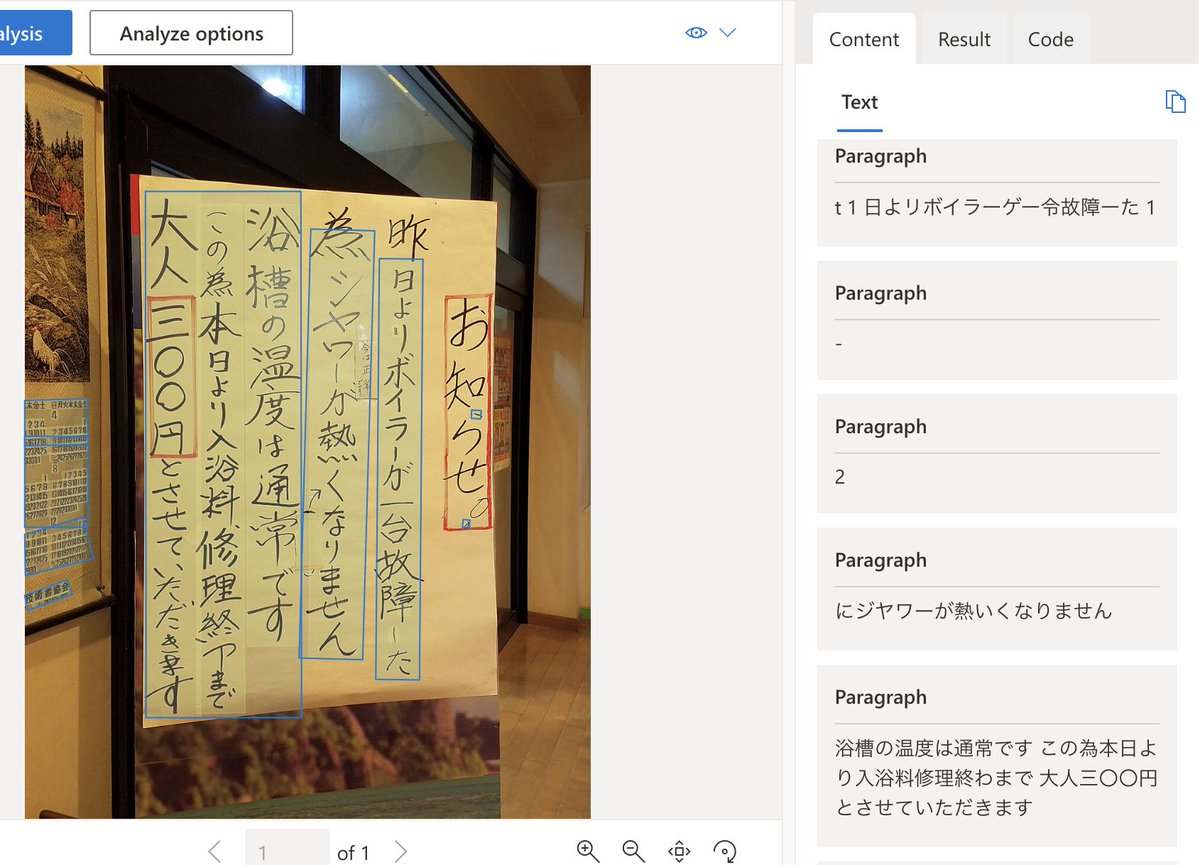 alysis
Analyze options
お知らせ。
昨日よりボイラーが一台故障した
為シヤワーが熱くなりません
浴槽の温度は通常です
この為本日より入浴料修理終了まで
大人三〇〇円とさせていただきます
技術者協会
1
of 1
Content
Result
Code
Text
Paragraph
t 1 日よリボイラーゲー令故障ーた 1
Paragraph
-
Paragraph
2
Paragraph
にジヤワーが熱いくなりません
Paragraph
浴槽の温度は通常です この為本日よ
り入浴料修理終わまで 大人三〇〇円
とさせていただきます